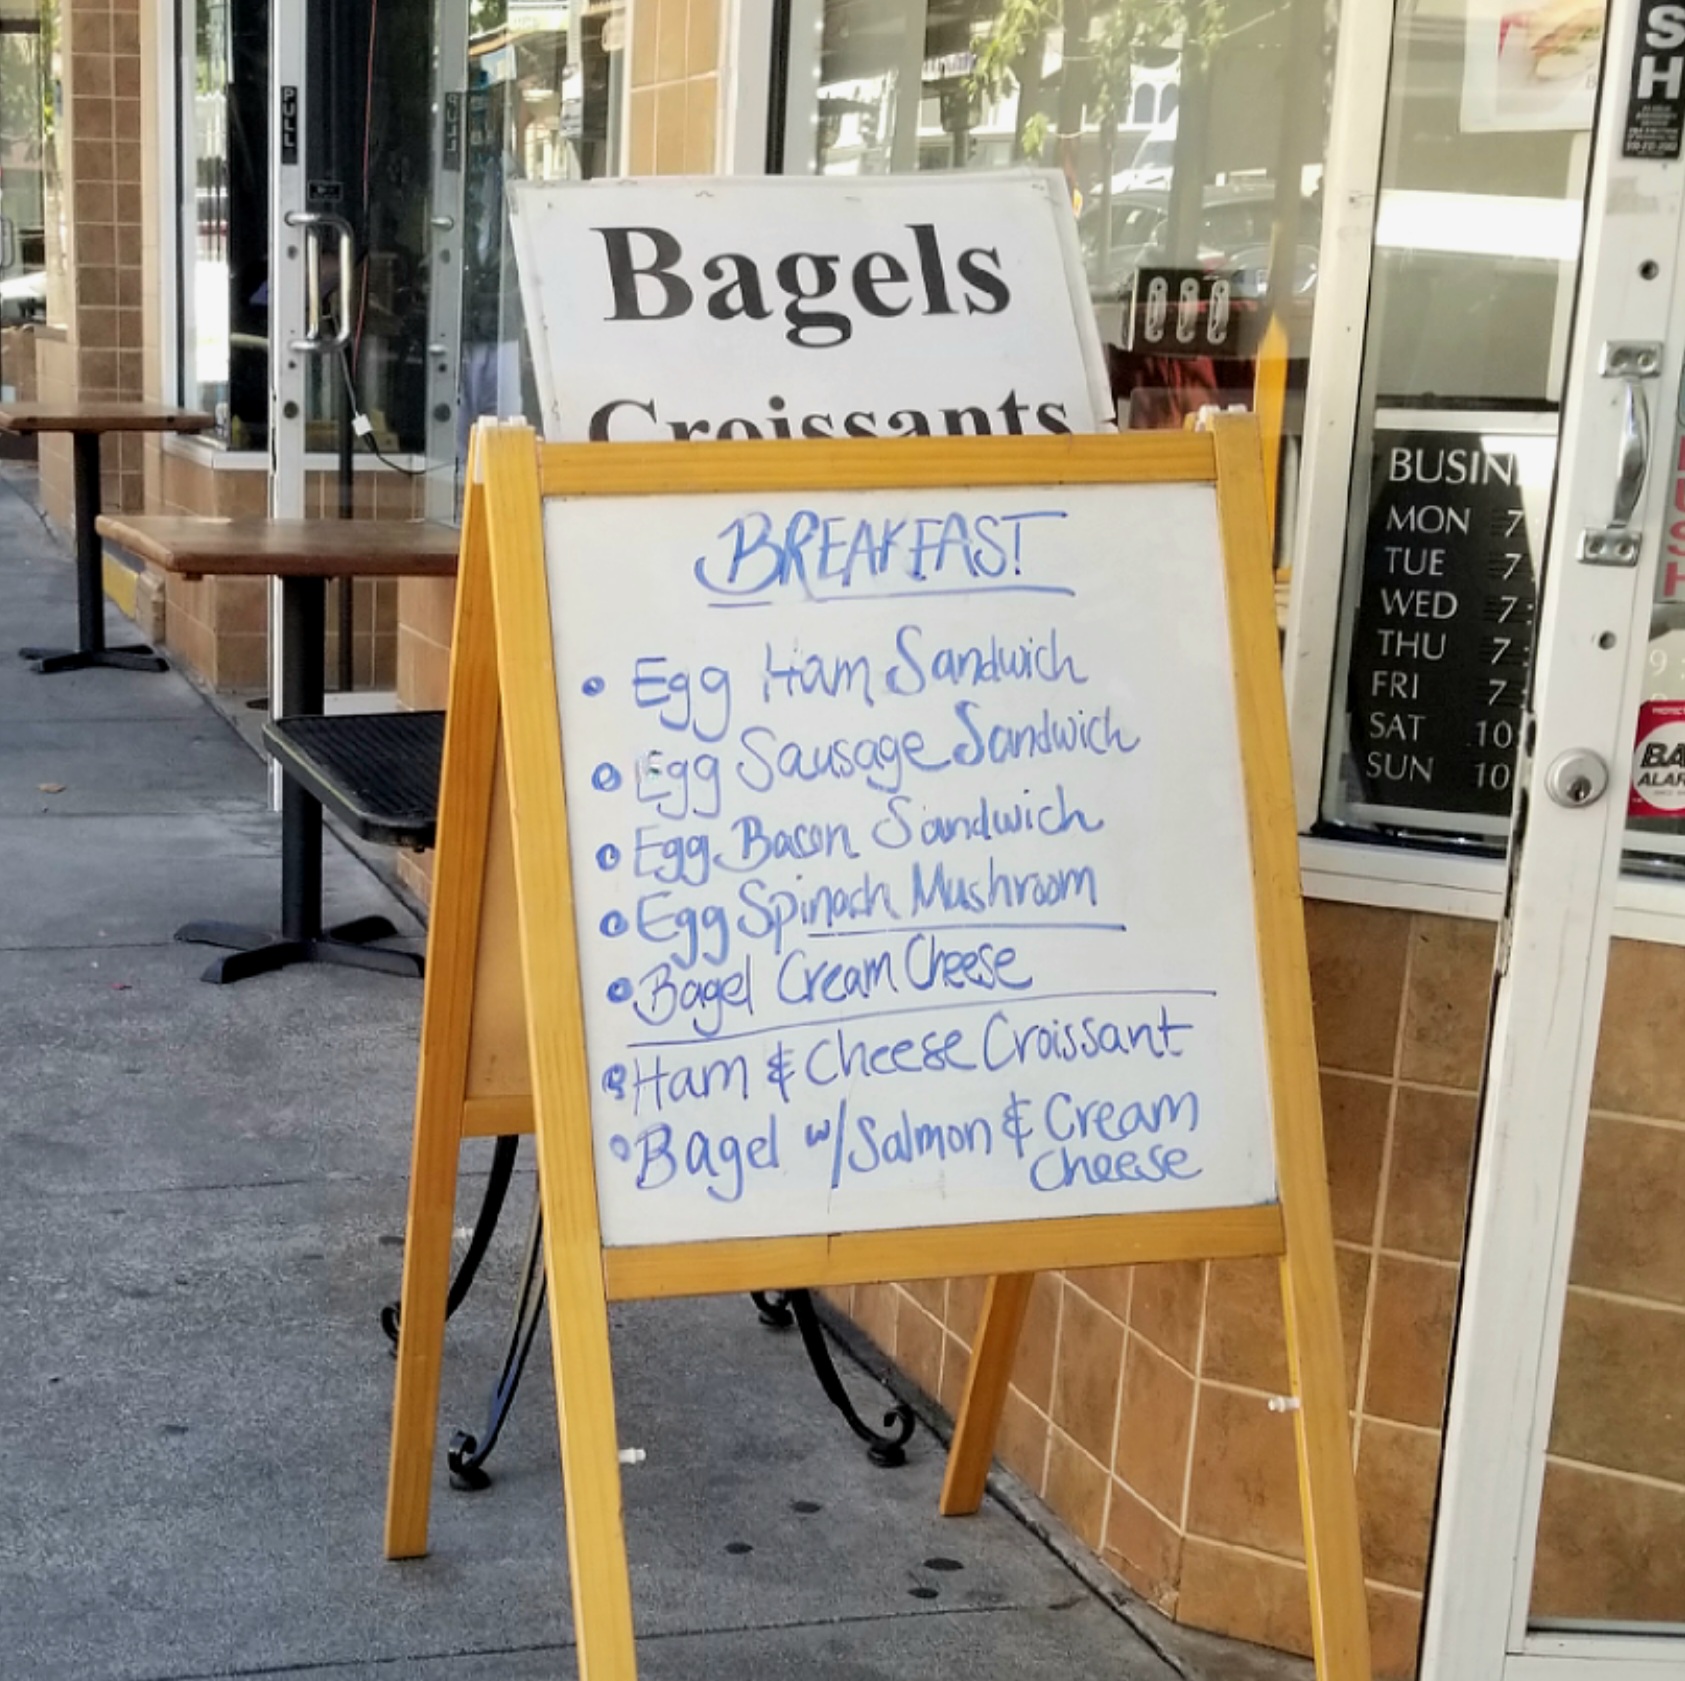 Bagels
Croissants
BREAKFAST
• Egg Ham Sandwich
• Egg Sausage Sandwich
• Egg Bacon Sandwich
• Egg Spinach Mushroom
• Bagel Cream Cheese
• Ham & Cheese Croissant
• Bagel w/ Salmon & Cream
Cheese
PULL
BUSIN
MON 7
TUE 7
WED 7:
THU 7:
FRI 7:
SAT 10
SUN 10
S
H
U
S
H
BA
ALAR